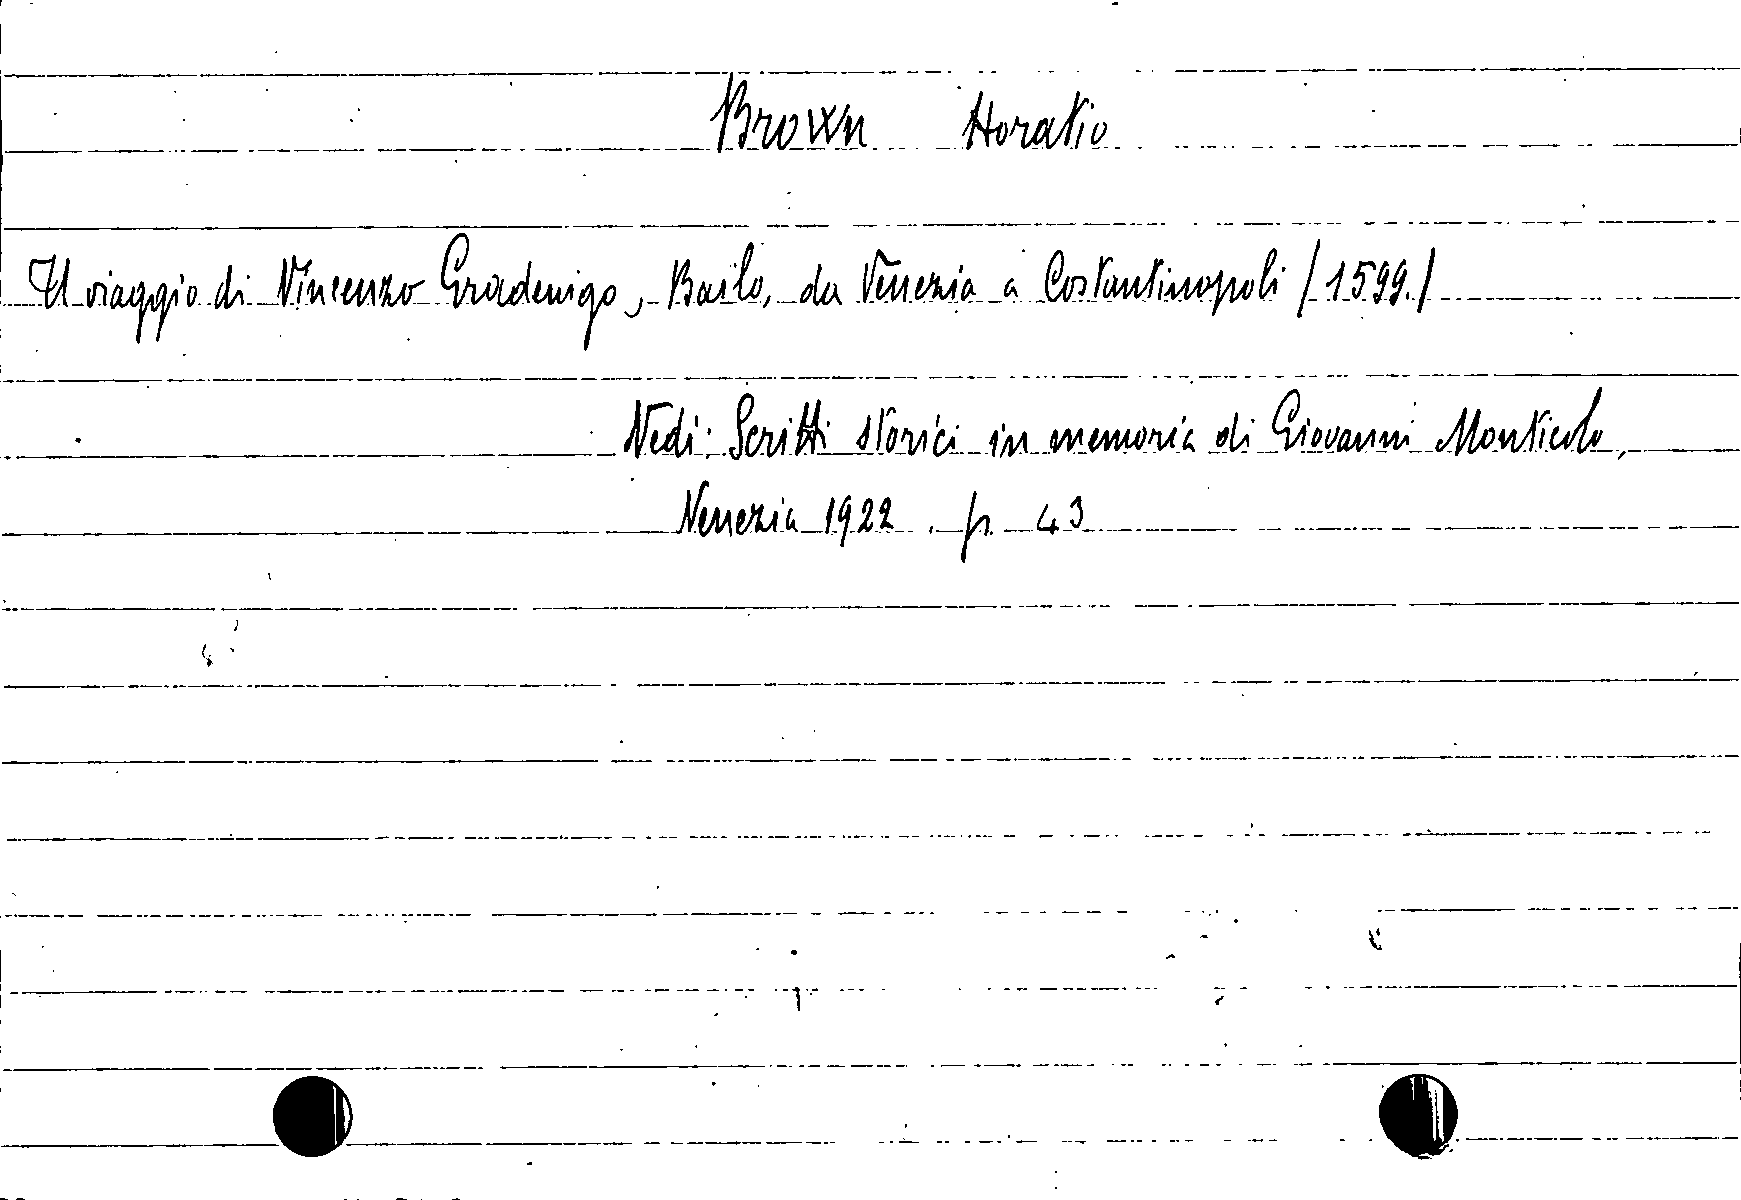 Brown Horatio
Il viaggio di Vincenzo Gradenigo, Bailo, da Venezia a Costantinopoli /1599./
Vedi: Scritti storici in memoria di Giovanni Monticolo,
Venezia 1922. p. 43